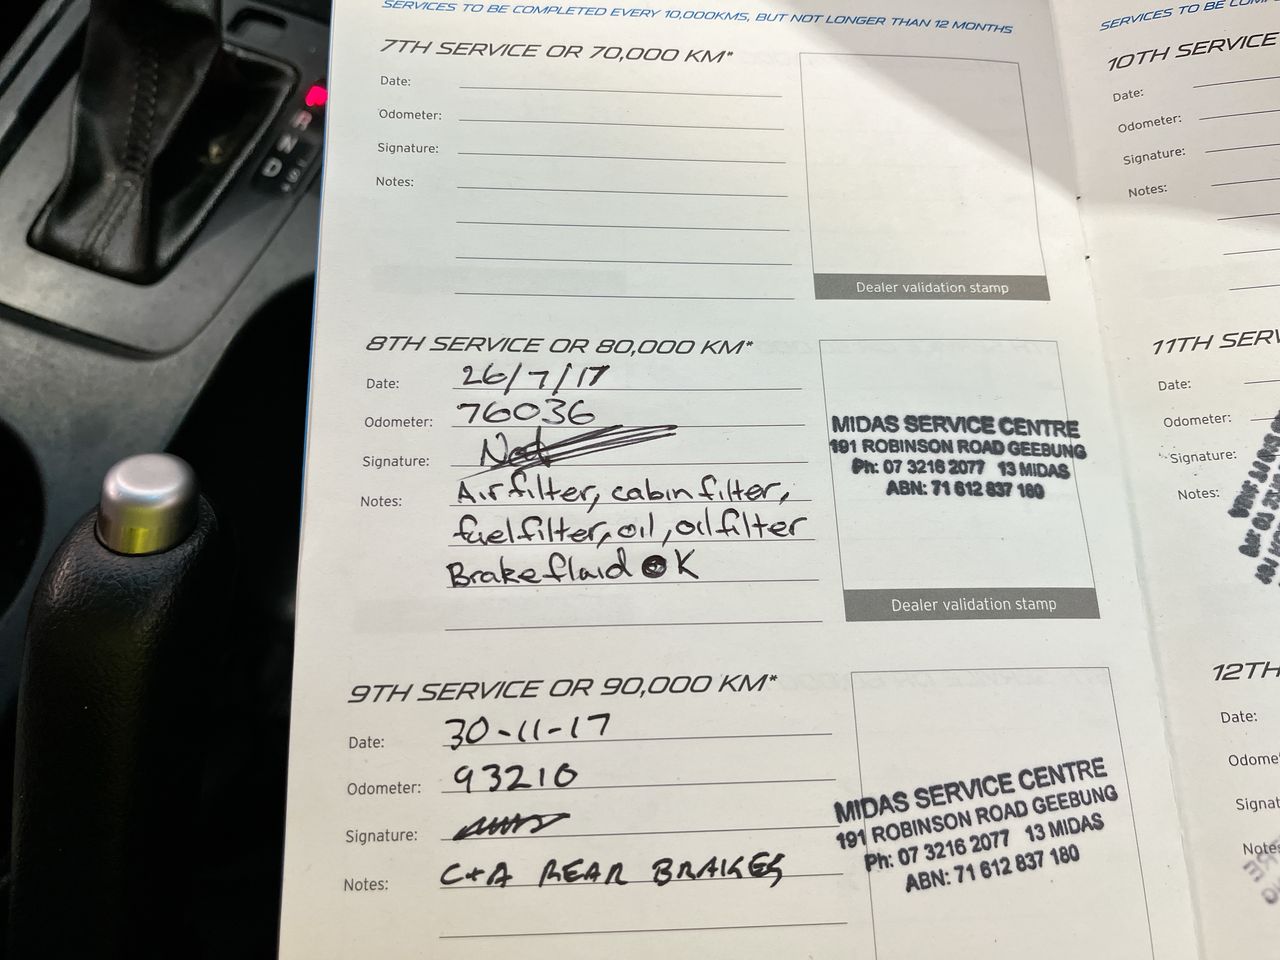 SERVICES TO BE COMPLETED EVERY 10,000KMS, BUT NOT LONGER THAN 12 MONTHS
7TH SERVICE OR 70,000 KM*
Date:
Odometer:
Signature:
Notes:
Dealer validation stamp
8TH SERVICE OR 80,000 KM*
Date: 26/7/17
Odometer: 76036
Signature:
Notes: Air filter, cabin filter,
fuel filter, oil, oil filter
Brake fluid OK
MIDAS SERVICE CENTRE
191 ROBINSON ROAD GEEBUNG
Ph: 07 3216 2077 13 MIDAS
ABN: 71 612 837 180
Dealer validation stamp
9TH SERVICE OR 90,000 KM*
Date: 30-11-17
Odometer: 93210
Signature:
Notes: C+A REAR BRAKES
MIDAS SERVICE CENTRE
191 ROBINSON ROAD GEEBUNG
Ph: 07 3216 2077 13 MIDAS
ABN: 71 612 837 180
SERVICES TO BE
10TH SERVICE
Date:
Odometer:
Signature:
Notes:
11TH SERV
Date:
Odometer:
Signature:
Notes:
12TH
Date:
Odome
Signat
Notes
R
N
D